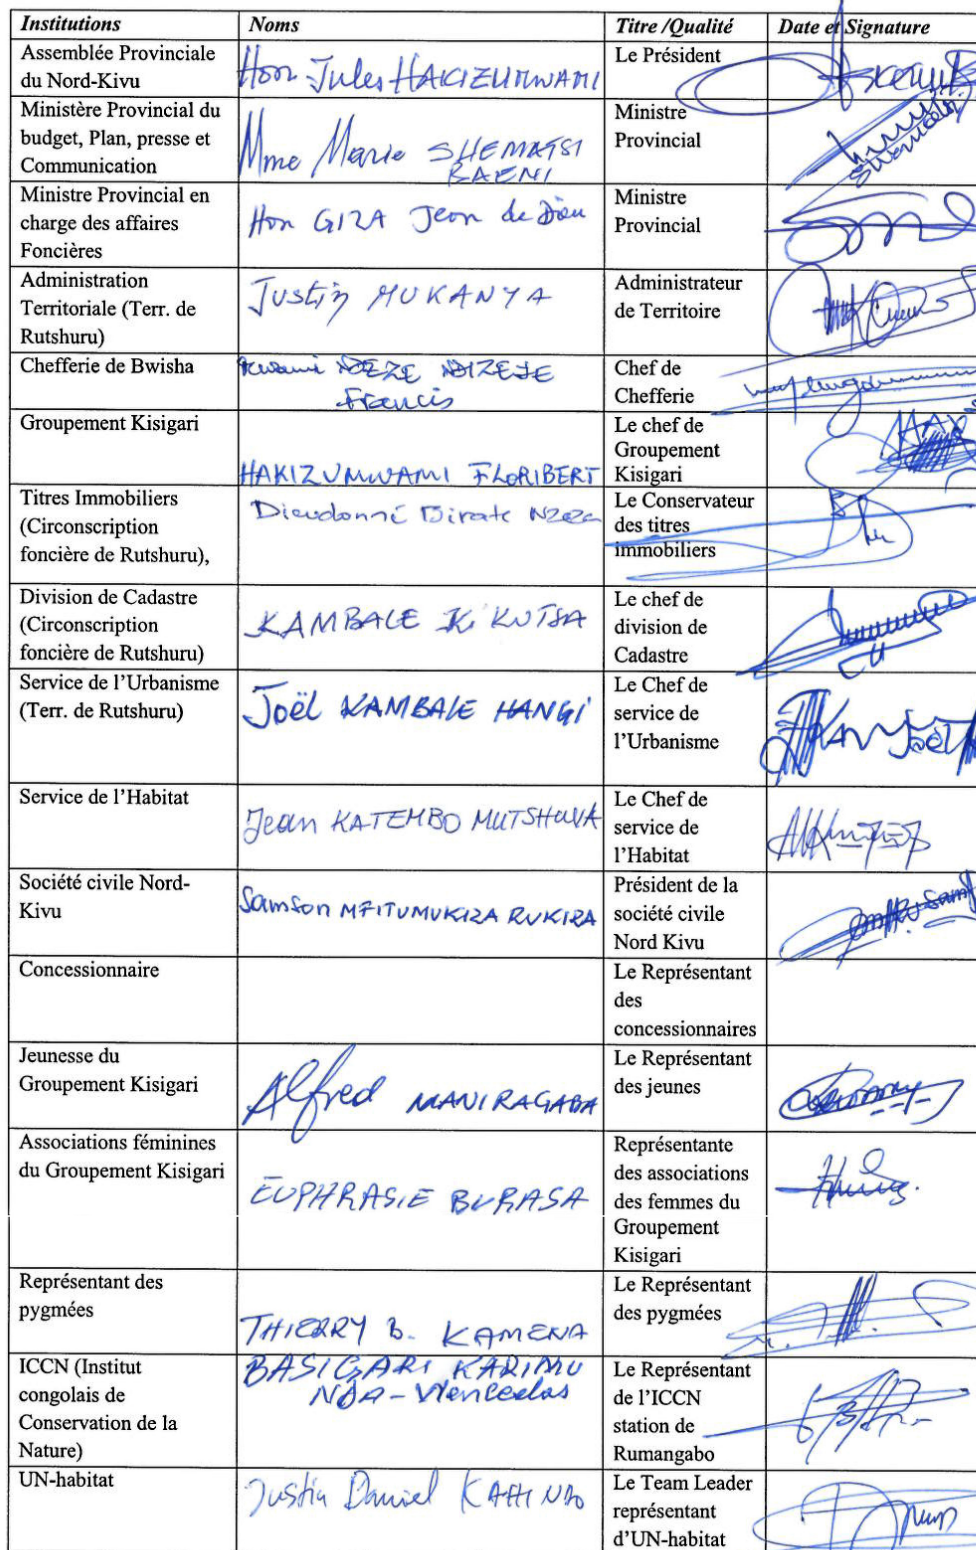 Institutions Noms Titre /Qualité Date et Signature
Assemblée Provinciale
du Nord-Kivu
Hon Jules HAKIZUMWAMI
Le Président
Ministère Provincial du
budget, Plan, presse et
Communication
Mme Marie SHEMATSI
BAENI
Ministre
Provincial
Ministre Provincial en
charge des affaires
Foncières
Hon GIRA Jean de Dieu
Ministre
Provincial
Administration
Territoriale (Terr. de
Rutshuru)
Justin MUKANYA
Administrateur
de Territoire
Chefferie de Bwisha
NDEZE
Francis
Chef de
Chefferie
Groupement Kisigari
HAKIZUMWAMI FLORIBERT
Le chef de
Groupement
Kisigari
Titres Immobiliers
(Circonscription
foncière de Rutshuru),
Dieudonné Birate
Le Conservateur
des titres
immobiliers
Division de Cadastre
(Circonscription
foncière de Rutshuru)
KAMBALE KIKUTSA
Le chef de
division de
Cadastre
Service de l’Urbanisme
(Terr. de Rutshuru)
Joël KAMBALE HANGI
Le Chef de
service de
l’Urbanisme
Joël
Service de l’Habitat
Jean KATEMBO MUTSHUVA
Le Chef de
service de
l’Habitat
Société civile Nord-
Kivu
Samson MFITUMUKIZA RUKIRA
Président de la
société civile
Nord Kivu
Concessionnaire
Le Représentant
des
concessionnaires
Jeunesse du
Groupement Kisigari
Alfred MANIRAGABA
Le Représentant
des jeunes
Associations féminines
du Groupement Kisigari
EUPHRASIE BURASA
Représentante
des associations
des femmes du
Groupement
Kisigari
Représentant des
pygmées
THIERRY B. KAMENA
Le Représentant
des pygmées
ICCN (Institut
congolais de
Conservation de la
Nature)
BASIGARI KARIMU
Wenceslas
Le Représentant
de l’ICCN
station de
Rumangabo
UN-habitat
Justin Daniel KAHINDO
Le Team Leader
représentant
d’UN-habitat